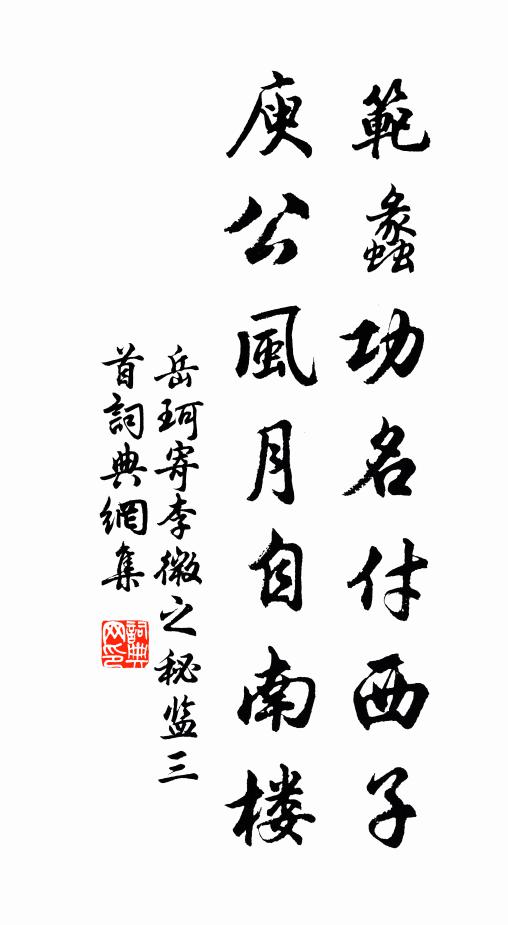 範蠡功名付西子
庾公風月自南楼
岳珂寄李微之秘监三
首詞典網集
詞典
网印